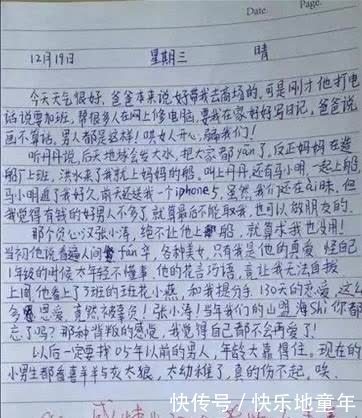 Date.
Page.
12月19日 星期三 晴
今天天气很好,爸爸本来说好带我去商场的,可是刚才他打电
话说要加班,帮很多人在网上修电脑,要我在家好好写日记,爸爸说
画不算话,男人都是这样!哄女人开心,骗我们!
听丹丹说,后天地球会发大水,把大家都yan了,反正妈妈在造
船厂上班,洪水来了我就上妈妈的船,叫上丹丹还有马小明,一起上船,
马小明追了我好久,前天还送我一个iphone5,虽然我们还在ai昧,但
我觉得有钱的好男人不多了,就算最后不能娶我,也可以做朋友的.
那个负心汉张小涛,绝不让他上船,就算求我也没用!
当初他说看遍人间fan华,各种美女,只有我是他的真爱,怪自己
1年级的时候太年轻不懂事,他的花言巧语,竟让我无法自拔
上周他看上了3班的班花小燕,和我提分手,130天的恋爱,这么
多恩爱,竟然被辜负!张小涛!当年我们的山盟海Shi你都
忘了吗?那种背叛的感觉,我觉得自己都不会再爱了!
以后一定要找05年以前的男人,年龄大靠得住。现在的
小男生都看喜羊羊与灰太狼,太幼稚了,真的伤不起,唉.
快传号/快乐地童年